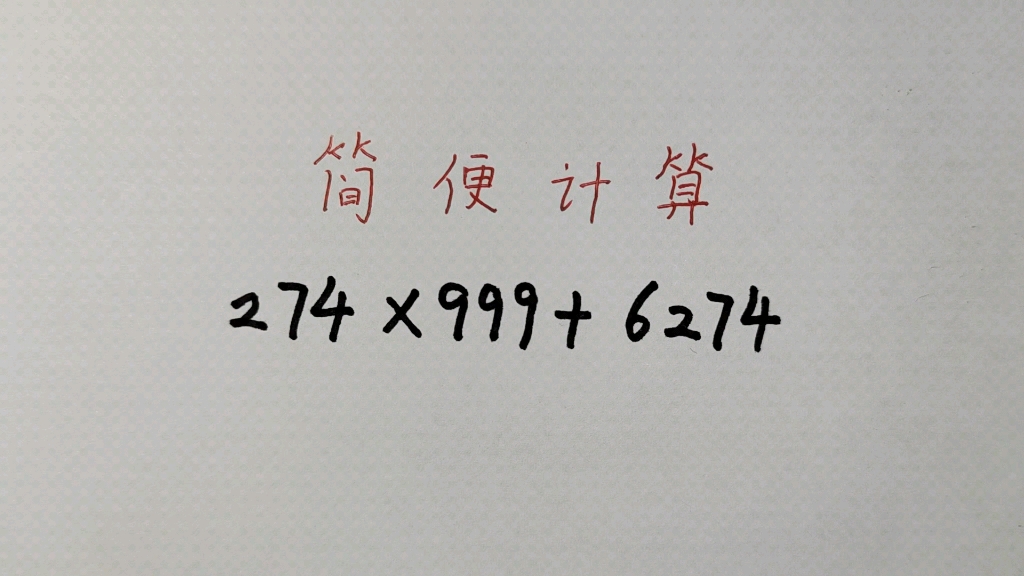 简便计算
274×999+6274